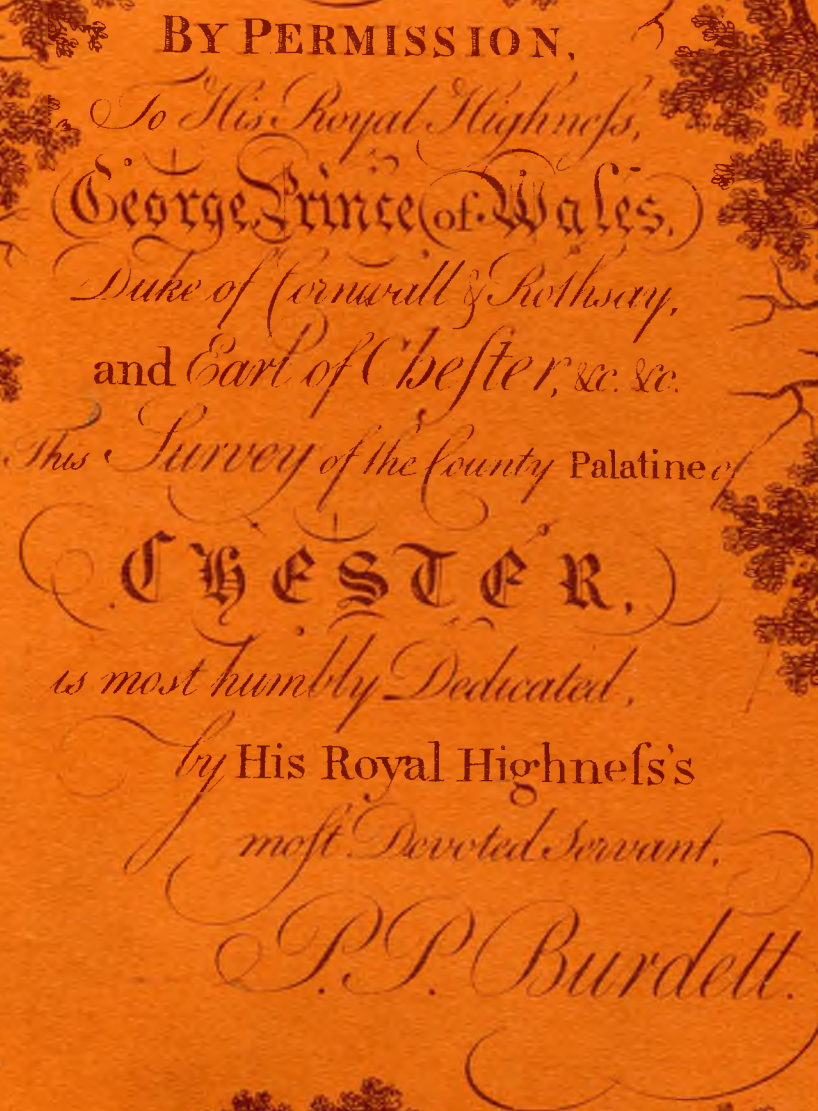 BY PERMISSION,
To His Royal Highneſs,
George Prince of Wales,
Duke of Cornwall & Rothsay,
and Earl of Cheſter, &c. &c.
This Survey of the County Palatine of
CHESTER,
is most humbly Dedicated,
by His Royal Highneſs's
moſt Devoted Servant,
P. P. Burdett.